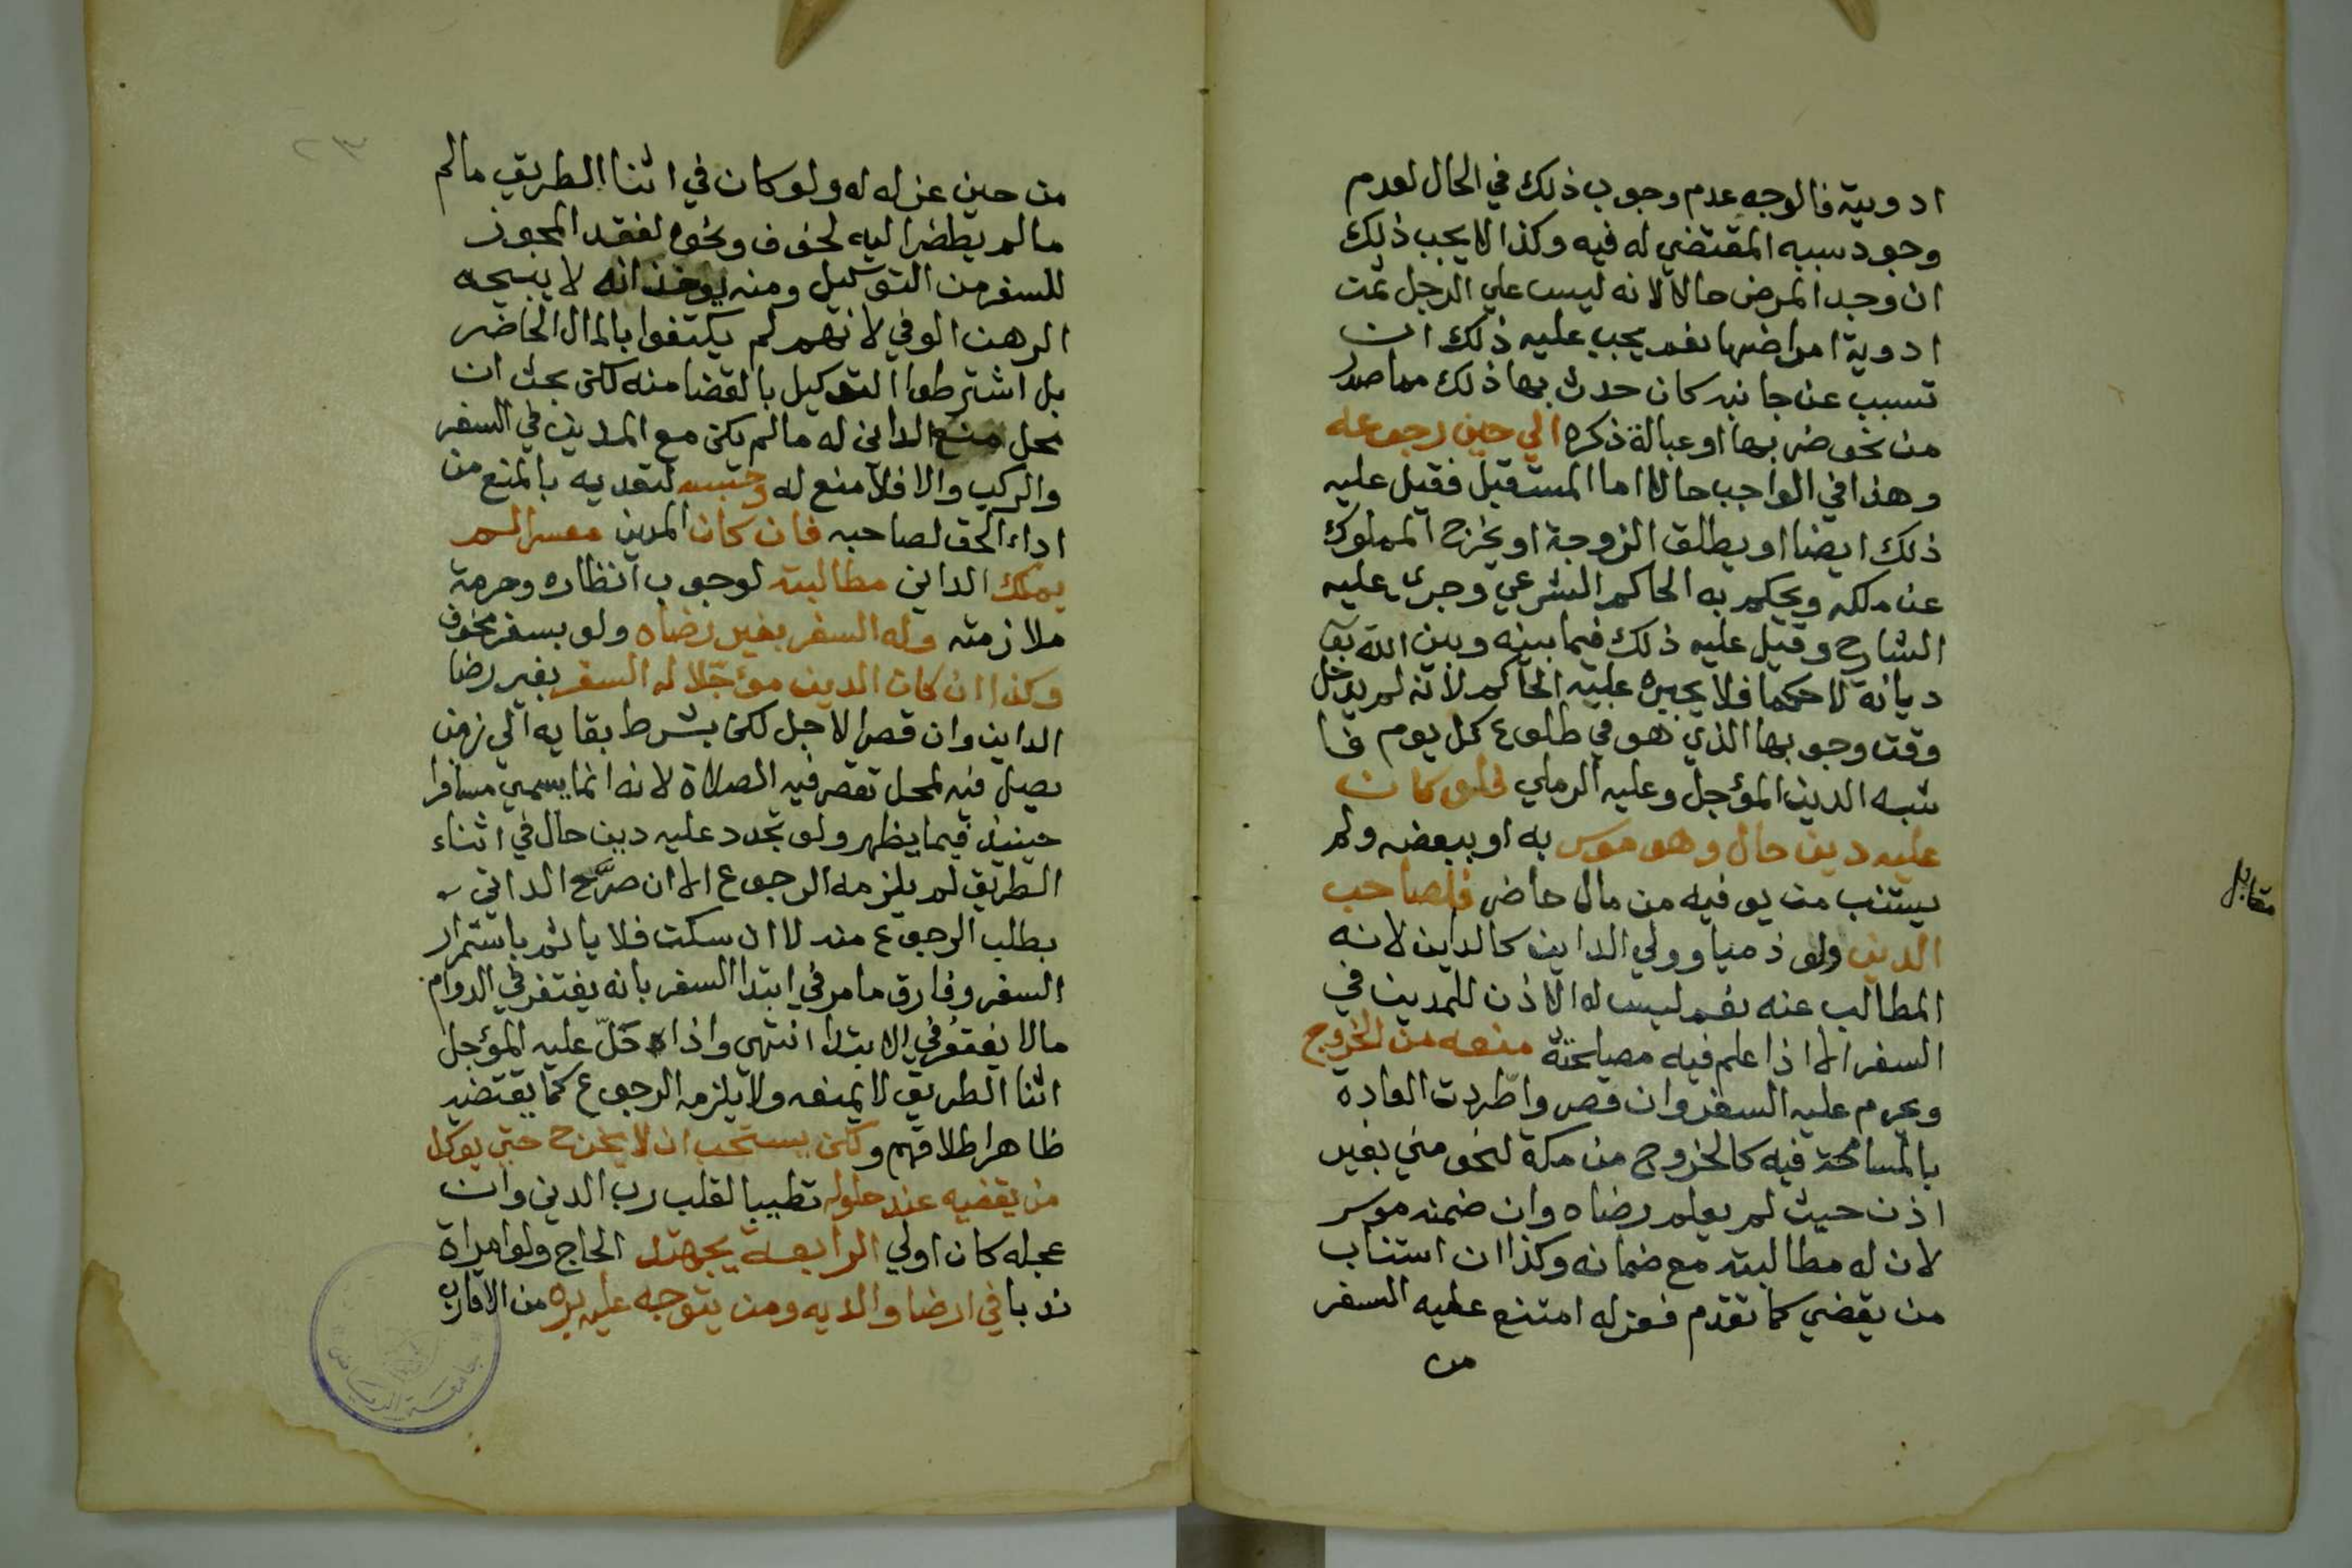 ادوية فالوجه عدم وجوب ذلك في الحال لعدم
وجود سببه المقتضي له فيه وكذا لا يجب ذلك
ان وجد المرض حالا لانه ليس علي الرجل ثمت
ادوية امراضها نعم يجب عليه ذلك ان
تسبب عن جانبه كان حدث بها ذلك مما صدر
من نحو ضربها او عبالة ذكره الي حين رجوعه
وهذا في الواجب حالا اما المستقبل فقيل عليه
ذلك ايضا او يطلق الزوجة او يخرج المملوك
عن ملكه ويحكم به الحاكم الشرعي وجري عليه
الشارح وقيل عليه ذلك فيما بينه وبين الله تع
ديانة لا حكما فلا يجبره عليه الحاكم لانه لم يدخل
وقت وجوبها الذي هو في طلوع كل يوم فا
شبه الدين المؤجل وعليه الرملي فلو كان
عليه دين حال وهو موسر به او ببعضه ولم
يستنب من يوفيه من مال حاضر فلصاحب
الدين ولو ذميا وولي الداين كالداين لانه
المطالب عنه نعم ليس له الاذن للمدين في
السفر الا اذا علم فيه مصلحة منعه من الخروج
ويحرم عليه السفر وان قصر واطردت العادة
بالمسامحة فيه كالخروج من مكة لنحو مني بغير
اذن حيث لم يعلم رضاه وان ضمنه موسر
لان له مطالبته مع ضمانه وكذا ان استناب
من يقضي كما تقدم فعزله امتنع عليه السفر
من
مقابل
٢٣
من حين عزله له ولو كان في اثنا الطريق مالم
مالم يضطر اليه لخوف ونحوه لفقد المجوز
للسفر من التوكيل ومنه يوخذ انه لا يبيحه
الرهن الوفي لانهم لم يكتفوا بالمال الحاضر
بل اشترطوا التوكيل بالقضا منه لكن بحث ان
محل منع الداين له مالم يكن مع المدين في السفر
والركب والا فلا منع له وحبسه لتعديه بالمنع من
اداء الحق لصاحبه فان كان المدين معسرا لم
يملك الداين مطالبته لوجوب انظاره وحرمة
ملازمته وله السفر بغير رضاه ولو بسفر مخوف
وكذا ان كان الدين مؤجّلا له السفر بغير رضا
الداين وان قصر الاجل لكن بشرط بقايه الي زمن
يصل فيه لمحل تقصر فيه الصلاة لانه انما يسمي مسافرا
حينيذ فيما يظهر ولو تجدد عليه دين حال في اثناء
الطريق لم يلزمه الرجوع الا ان صرَّح الداين
بطلب الرجوع منه لا ان سكت فلا ياثم باستمرار
السفر وفارق مامر في ابتدا السفر بانه يغتفر في الدوام
مالا يغتفر في الابتدا انتهي واذا حَلّ عليه المؤجل
اثنا الطريق لا يمنعه ولا يلزمه الرجوع كما يقتضيه
ظاهر اطلاقهم ولكن يستحب ان لا يخرج حتي يوكل
من يقضيه عند حلوله تطييبا لقلب رب الدين وان
عجله كان اولي الرابعة يجتهد الحاج ولو امراة
ندبا في ارضا والديه ومن يتوجه عليه بره من الاقارب
جامعة الرياض